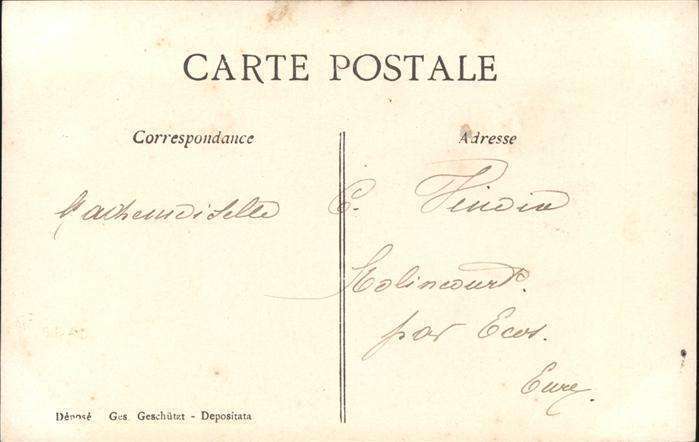 CARTE POSTALE
Correspondance
Adresse
Mademoiselle E.
Molincourt.
par Ecos.
Eure.
Déposé Ges. Geschützt - Depositata